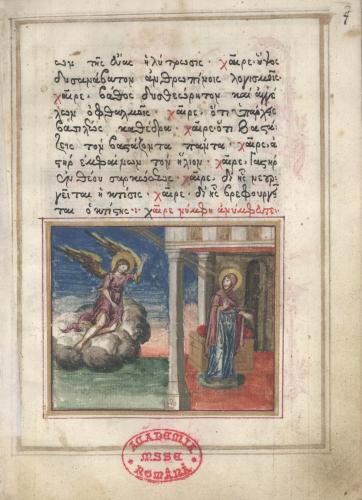 σων τῆς Εὔας ἡ λύτρωσις· χαῖρε· ὕψος
δυσανάβατον ἀνθρωπίνοις λογισμοῖς·
χαῖρε, βάθος δυσθεώρητον καὶ ἀγγέ
λων ὀφθαλμοῖς· χαῖρε, ὅτι ὑπάρχεις
βασιλέως καθέδρα· χαῖρε· ὅτι βαστά
ζεις τὸν βαστάζοντα πάντα· χαῖρε, ἀ
στὴρ ἐμφαίνων τὸν ἥλιον· χαῖρε, γαστὴρ
ἐνθέου σαρκώσεως· χαῖρε, δι' ἧς νεουρ
γεῖται ἡ κτίσις· χαῖρε, δι' ἧς βρεφουργεῖ
ται ὁ κτίστης· χαῖρε νύμφη ἀνύμφευτε·
ACADEMIA
MSSE
ROMÂNĂ